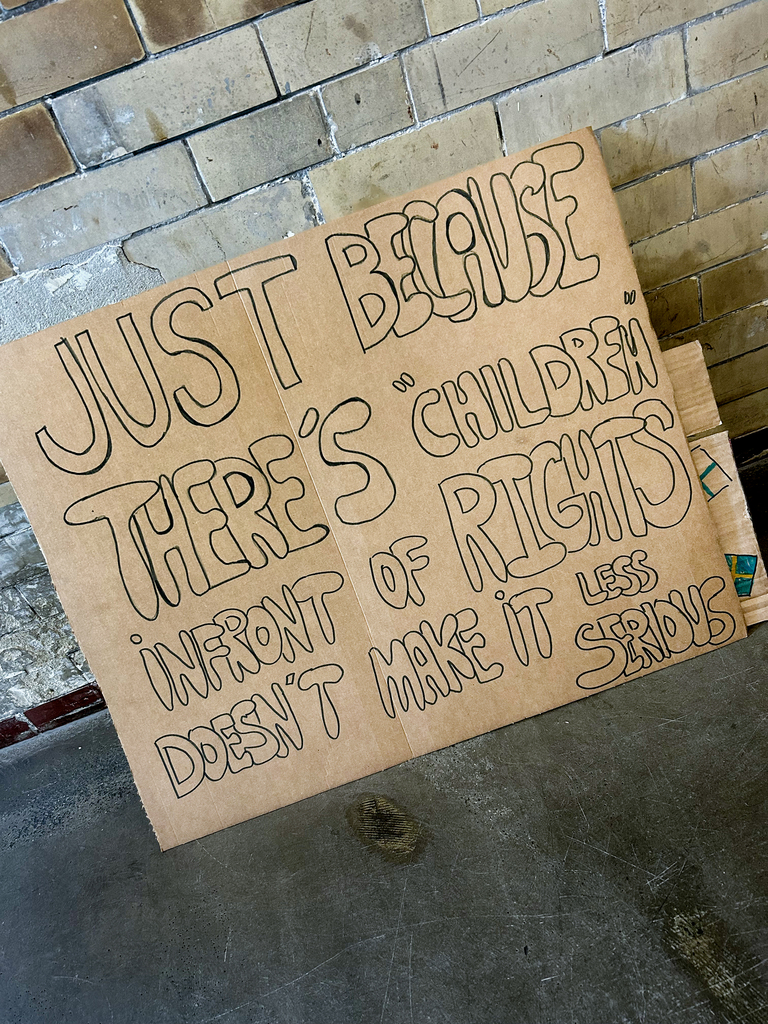 JUST BECAUSE
THERE'S "CHILDREN"
INFRONT OF RIGHTS
DOESN'T MAKE IT LESS
SERIOUS